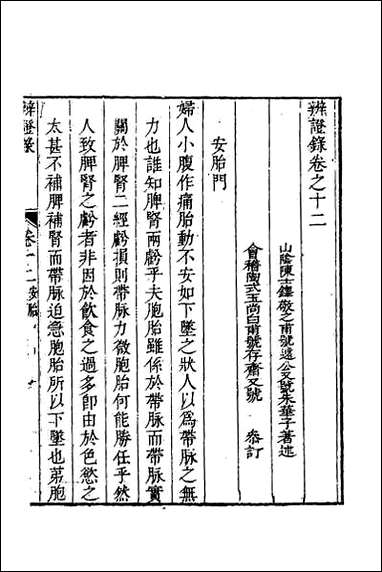 辨證錄卷之十二
山陰陳士鐸敬之甫號遠公又號朱華子著述
會稽陶式玉尚白甫號存齋又號　叅訂
安胎門
婦人小腹作痛胎動不安如下墜之狀人以爲帶脉之無
力也誰知脾腎兩虧乎夫胞胎雖係於帶脉而帶脉實
關於脾腎二經虧損則帶脉力微胞胎何能勝任乎然
人致脾腎之虧者非因於飮食之過多卽由於色慾之
太甚不補脾補腎而帶脉迫急胞胎所以下墜也第胞
辨證錄　卷十二安胎